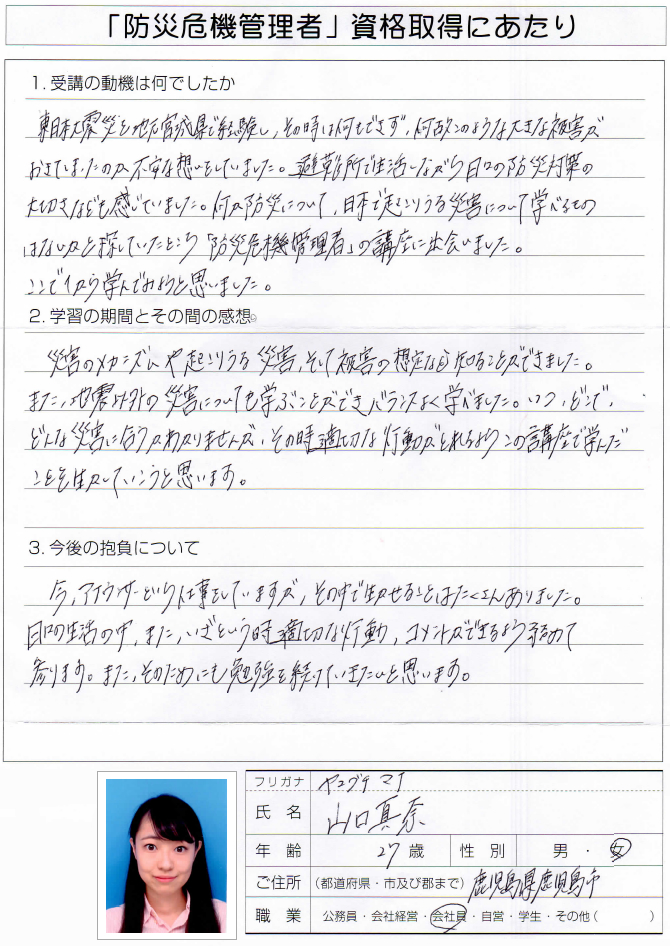 「防災危機管理者」資格取得にあたり
1. 受講の動機は何でしたか
東日本大震災を地元宮城県で経験し、その時は何もできず、何故このような大きな被害が
おきてしまったのか不安な想いをしていました。避難所で生活しながら日々の防災対策の
大切さなども感じていました。何か防災について、日本で起こりうる災害について学べるもの
はないかと探していたところ「防災危機管理者」の講座に出会いました。
ここで1から学んでみようと思いました。
2. 学習の期間とその間の感想。
災害のメカニズムや起こりうる災害、そして被害の想定など知ることができました。
また、地震以外の災害についても学ぶことができバランスよく学べました。いつ、どこで、
どんな災害に合うかわかりませんが、その時適切な行動がとれるようこの講座で学んだ
ことを生かしていこうと思います。
3. 今後の抱負について
今、アナウンサーという仕事をしていますが、その中で生かせることはたくさんありました。
日々の生活の中、また、いざという時適切な行動、コメントができるよう努めて
参ります。また、そのためにも勉強を続けていきたいと思います。
フリガナ ヤマグチ マナ
氏 名 山口真奈
年 齢 27 歳 性 別 男 ・ 女
ご住所 (都道府県・市及び郡まで) 鹿児島県鹿児島市
職 業 公務員・会社経営・会社員・自営・学生・その他( )